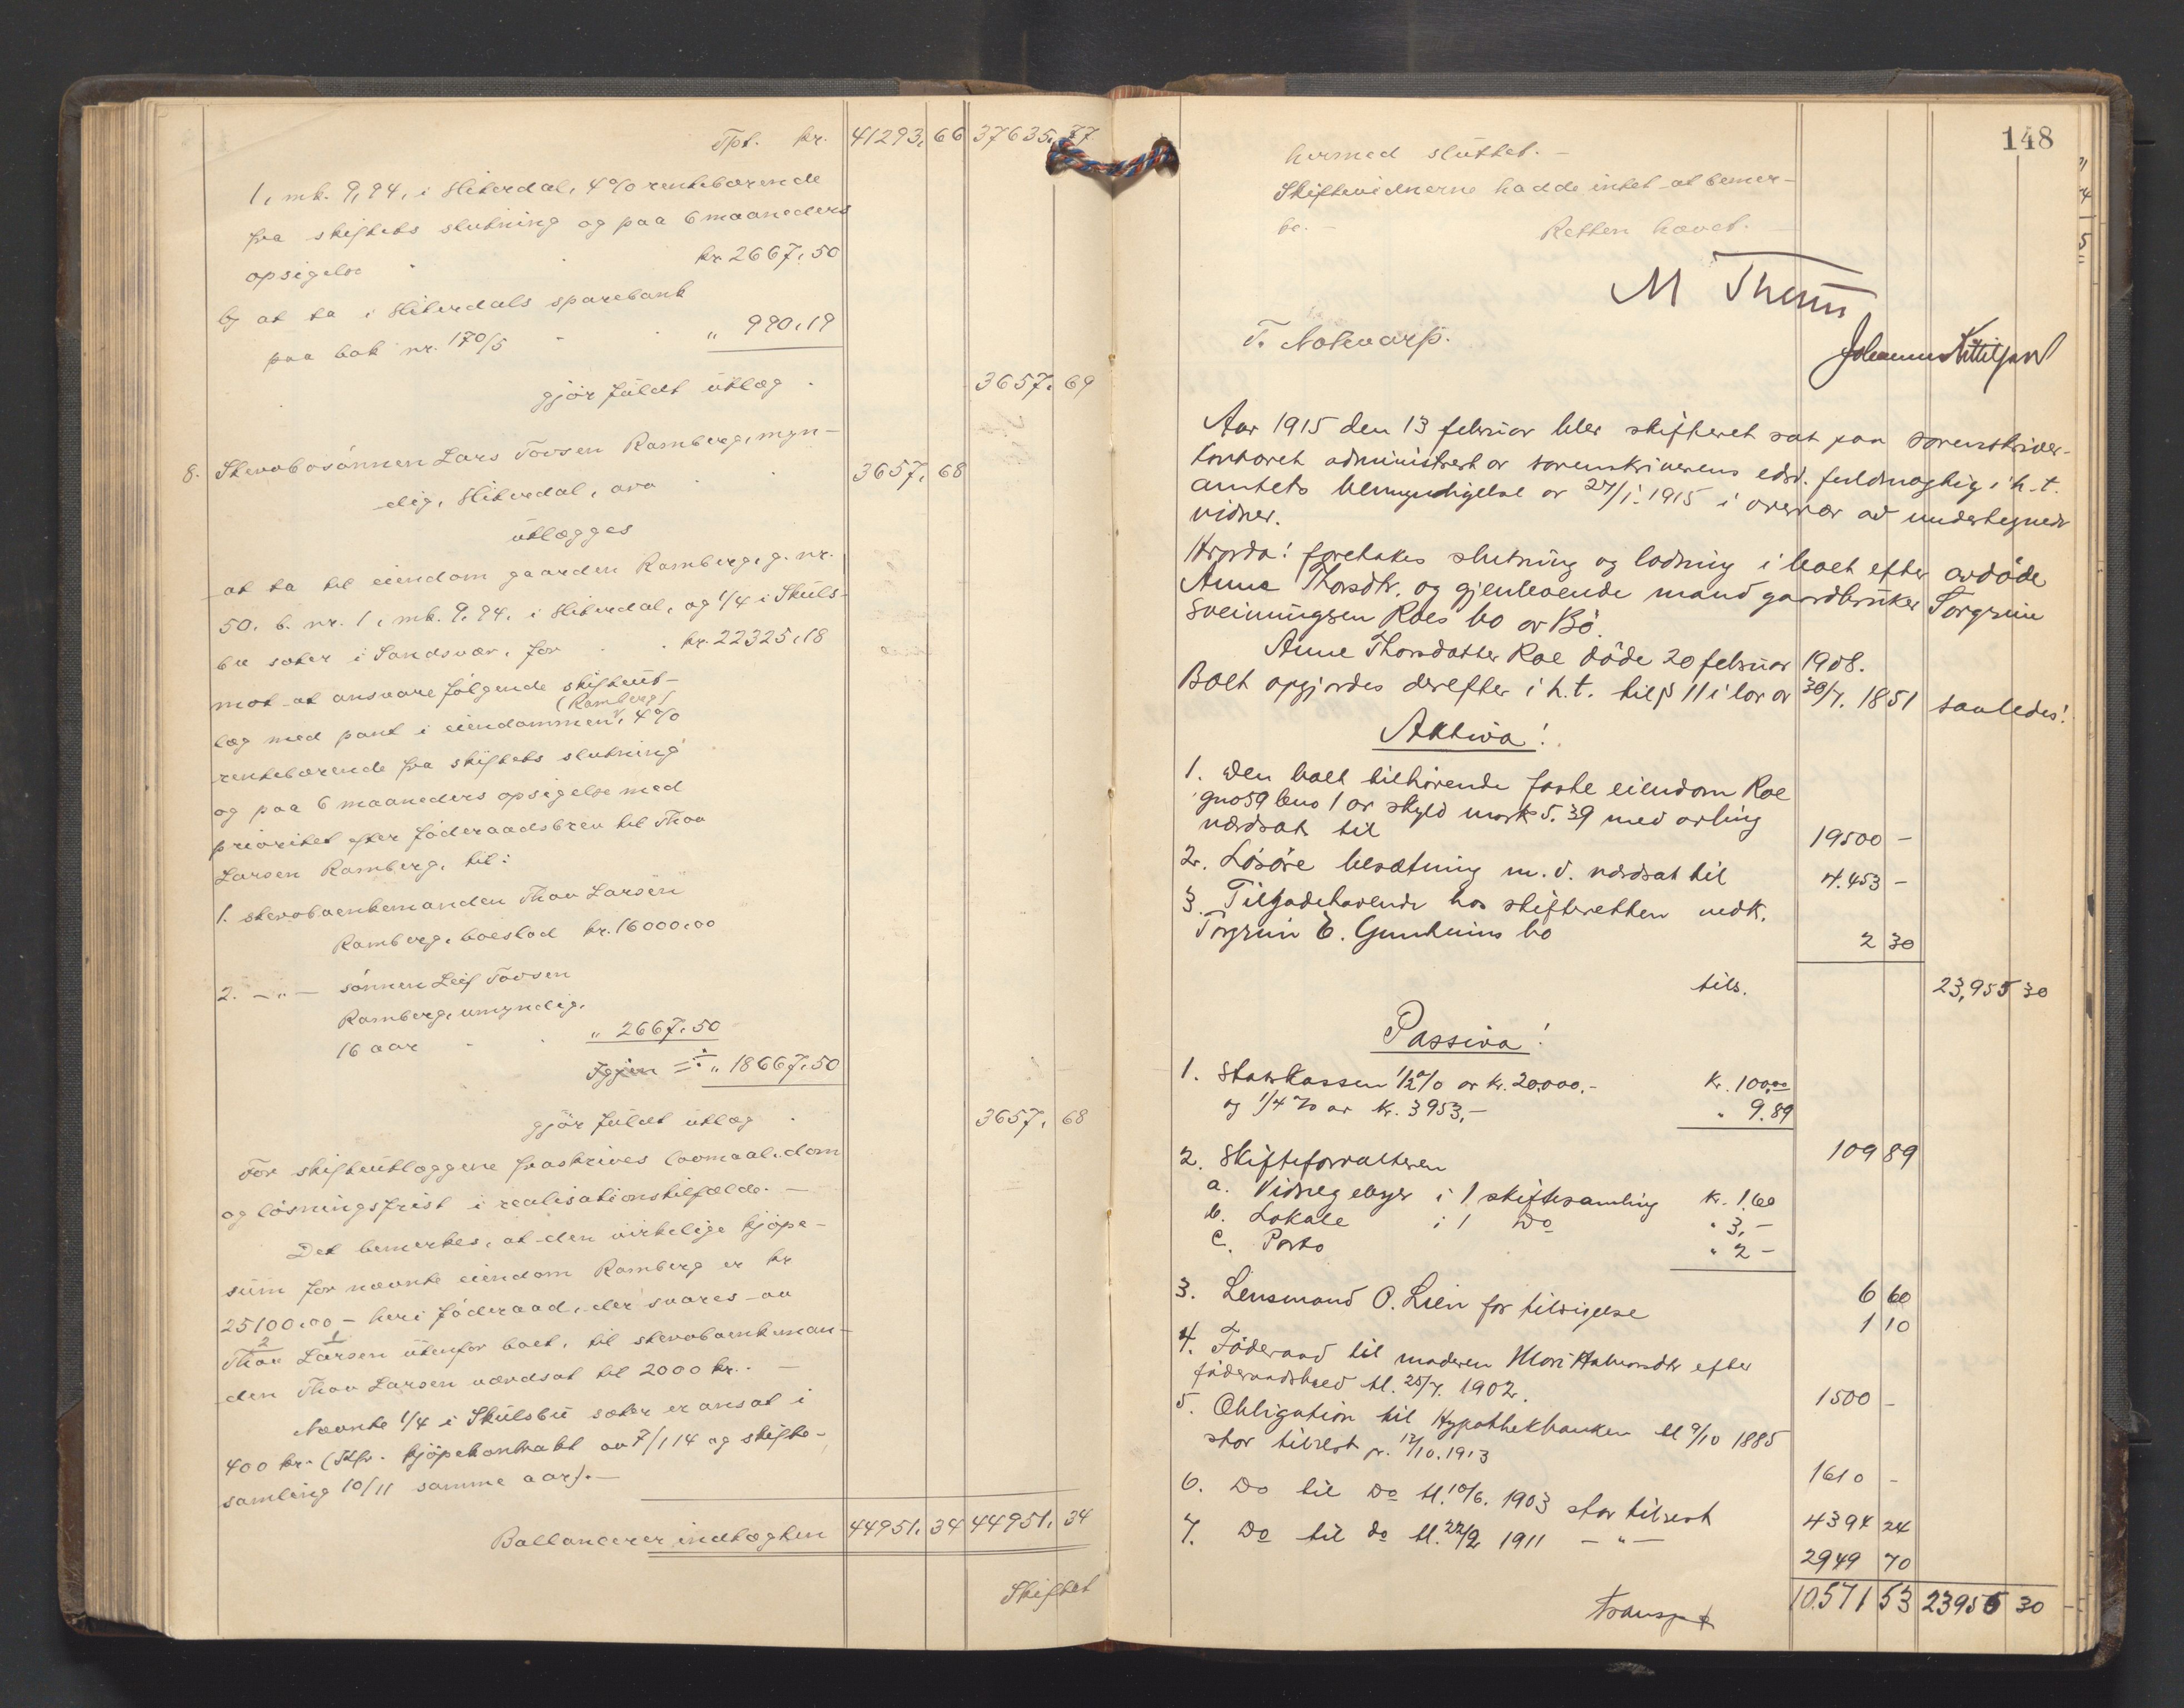 Tpt. kr. 41293,66 37635,77
1, mk. 9,94, i Hiterdal, 4% rentebærende
fra skiftets slutning og paa 6 maaneders
opsigelse kr. 2667,50
b) at ta i Hiterdals sparebank
paa bok nr. 170/5 " 990,19
gjör fuldt utlæg 3657,69
8. Stervbosönnen Lars Tovsen Ramberg, myn-
dig, Hiterdal, arv 3657,68
utlægges
at ta til eiendom gaarden Ramberg, g. nr.
50, b. nr. 1, mk. 9,94, i Hiterdal, og 1/4 i Skuls-
bu sæter i Sandsvær, for kr. 22325,18
mot at ansvare fölgende skifteut-
læg med pant i eiendommen (Ramberg), 4%
rentebærende fra skiftets slutning
og paa 6 maaneders opsigelse med
prioritet efter föderaadsbrev til Thov
Larsen Ramberg, til:
1. stervboenkemanden Thov Larsen
Ramberg, boeslod kr. 16000,00
2. -"- sönnen Leif Tovsen
Ramberg, umyndig,
16 aar " 2667,50
Igjen = ÷ " 18667,50
gjör fuldt utlæg 3657,68
For skifteutlæggene fraskrives lovmaal, dom
og lösningsfrist i realisationstilfælde. -
Det bemerkes, at den virkelige kjöpe-
sum for nævnte eiendom Ramberg er kr
25100,00 - heri föderaad, der svares av
2 1
Thov Larsen utenfor boet, til stervboenkeman-
den Thov Larsen værdsat til 2000 kr. -
Nævnte 1/4 i Skulsbu sæter er ansat i
400 kr. (Jfr. kjöpekontrakt av 7/1 14 og skifte-
samling 10/11 samme aar). -
Ballancerer indtægten 44951,34 44951,34
Skiftet
148
hermed sluttet. -
Skiftevidnerne hadde intet at bemer-
ke. - Retten hævet. -
M Thurn
T. Notevarp. Johannes Kittilsen
Aar 1915 den 13 februar blev skifteret sat paa sorenskriver-
kontoret administrert av sorenskriverens edsv. fuldmægtig i h. t.
amtets bemyndigelse av 27/1. 1915 i overvær av undertegnede
vidner.
Hvorda! foretakes slutning og lodning i boet efter avdöde
Anne Thorsdtr. og gjenlevende mand gaardbruker Torgrim
Sveinungsen Roes bo av Bö.
Anne Thorsdatter Roe döde 20 februar 1908.
Boet opgjordes derefter i h. t. til § 11 i lov av 30/7. 1851 saaledes!
Aktiva!
1. Den boet tilhörende faste eiendom Roe
gno 59 bno 1 av skyld mark 5.39 med avling
værdsat til 19500 -
2. Lösöre besætning m. v. værdsat til 4.453 -
3. Tilgodehavende hos skifteretten vedk.
Torgrim E. Gunheims bo 2 30
tils. 23,955 30
Passiva!
1. Statskassen 1/2% av kr. 20.000.- kr. 100,00
og 1/4 % av kr. 3953,- " 9.89
109 89
2. Skifteforvalteren
a. Vidnegebyr i 1 skiftesamling kr. 1.60
b. Lokale i 1 Do " 3,-
c. Porto " 2 -
6 60
3. Lensmand O. Lien for tilsigelse 1 10
4. Föderaad til moderen Mari Halvorsdtr efter
föderaadsbrev tl. 25/7. 1902. 1500 -
5. Obligation til Hypothekbanken tl 9/10 1885
stor tilrest pr. 12/10. 1913 1610 -
6. Do til Do tl. 10/6. 1903 stor tilrest 4394 24
7. Do til do tl. 22/2 1911 - " - 2949 70
transport 10.571 53 23955 30